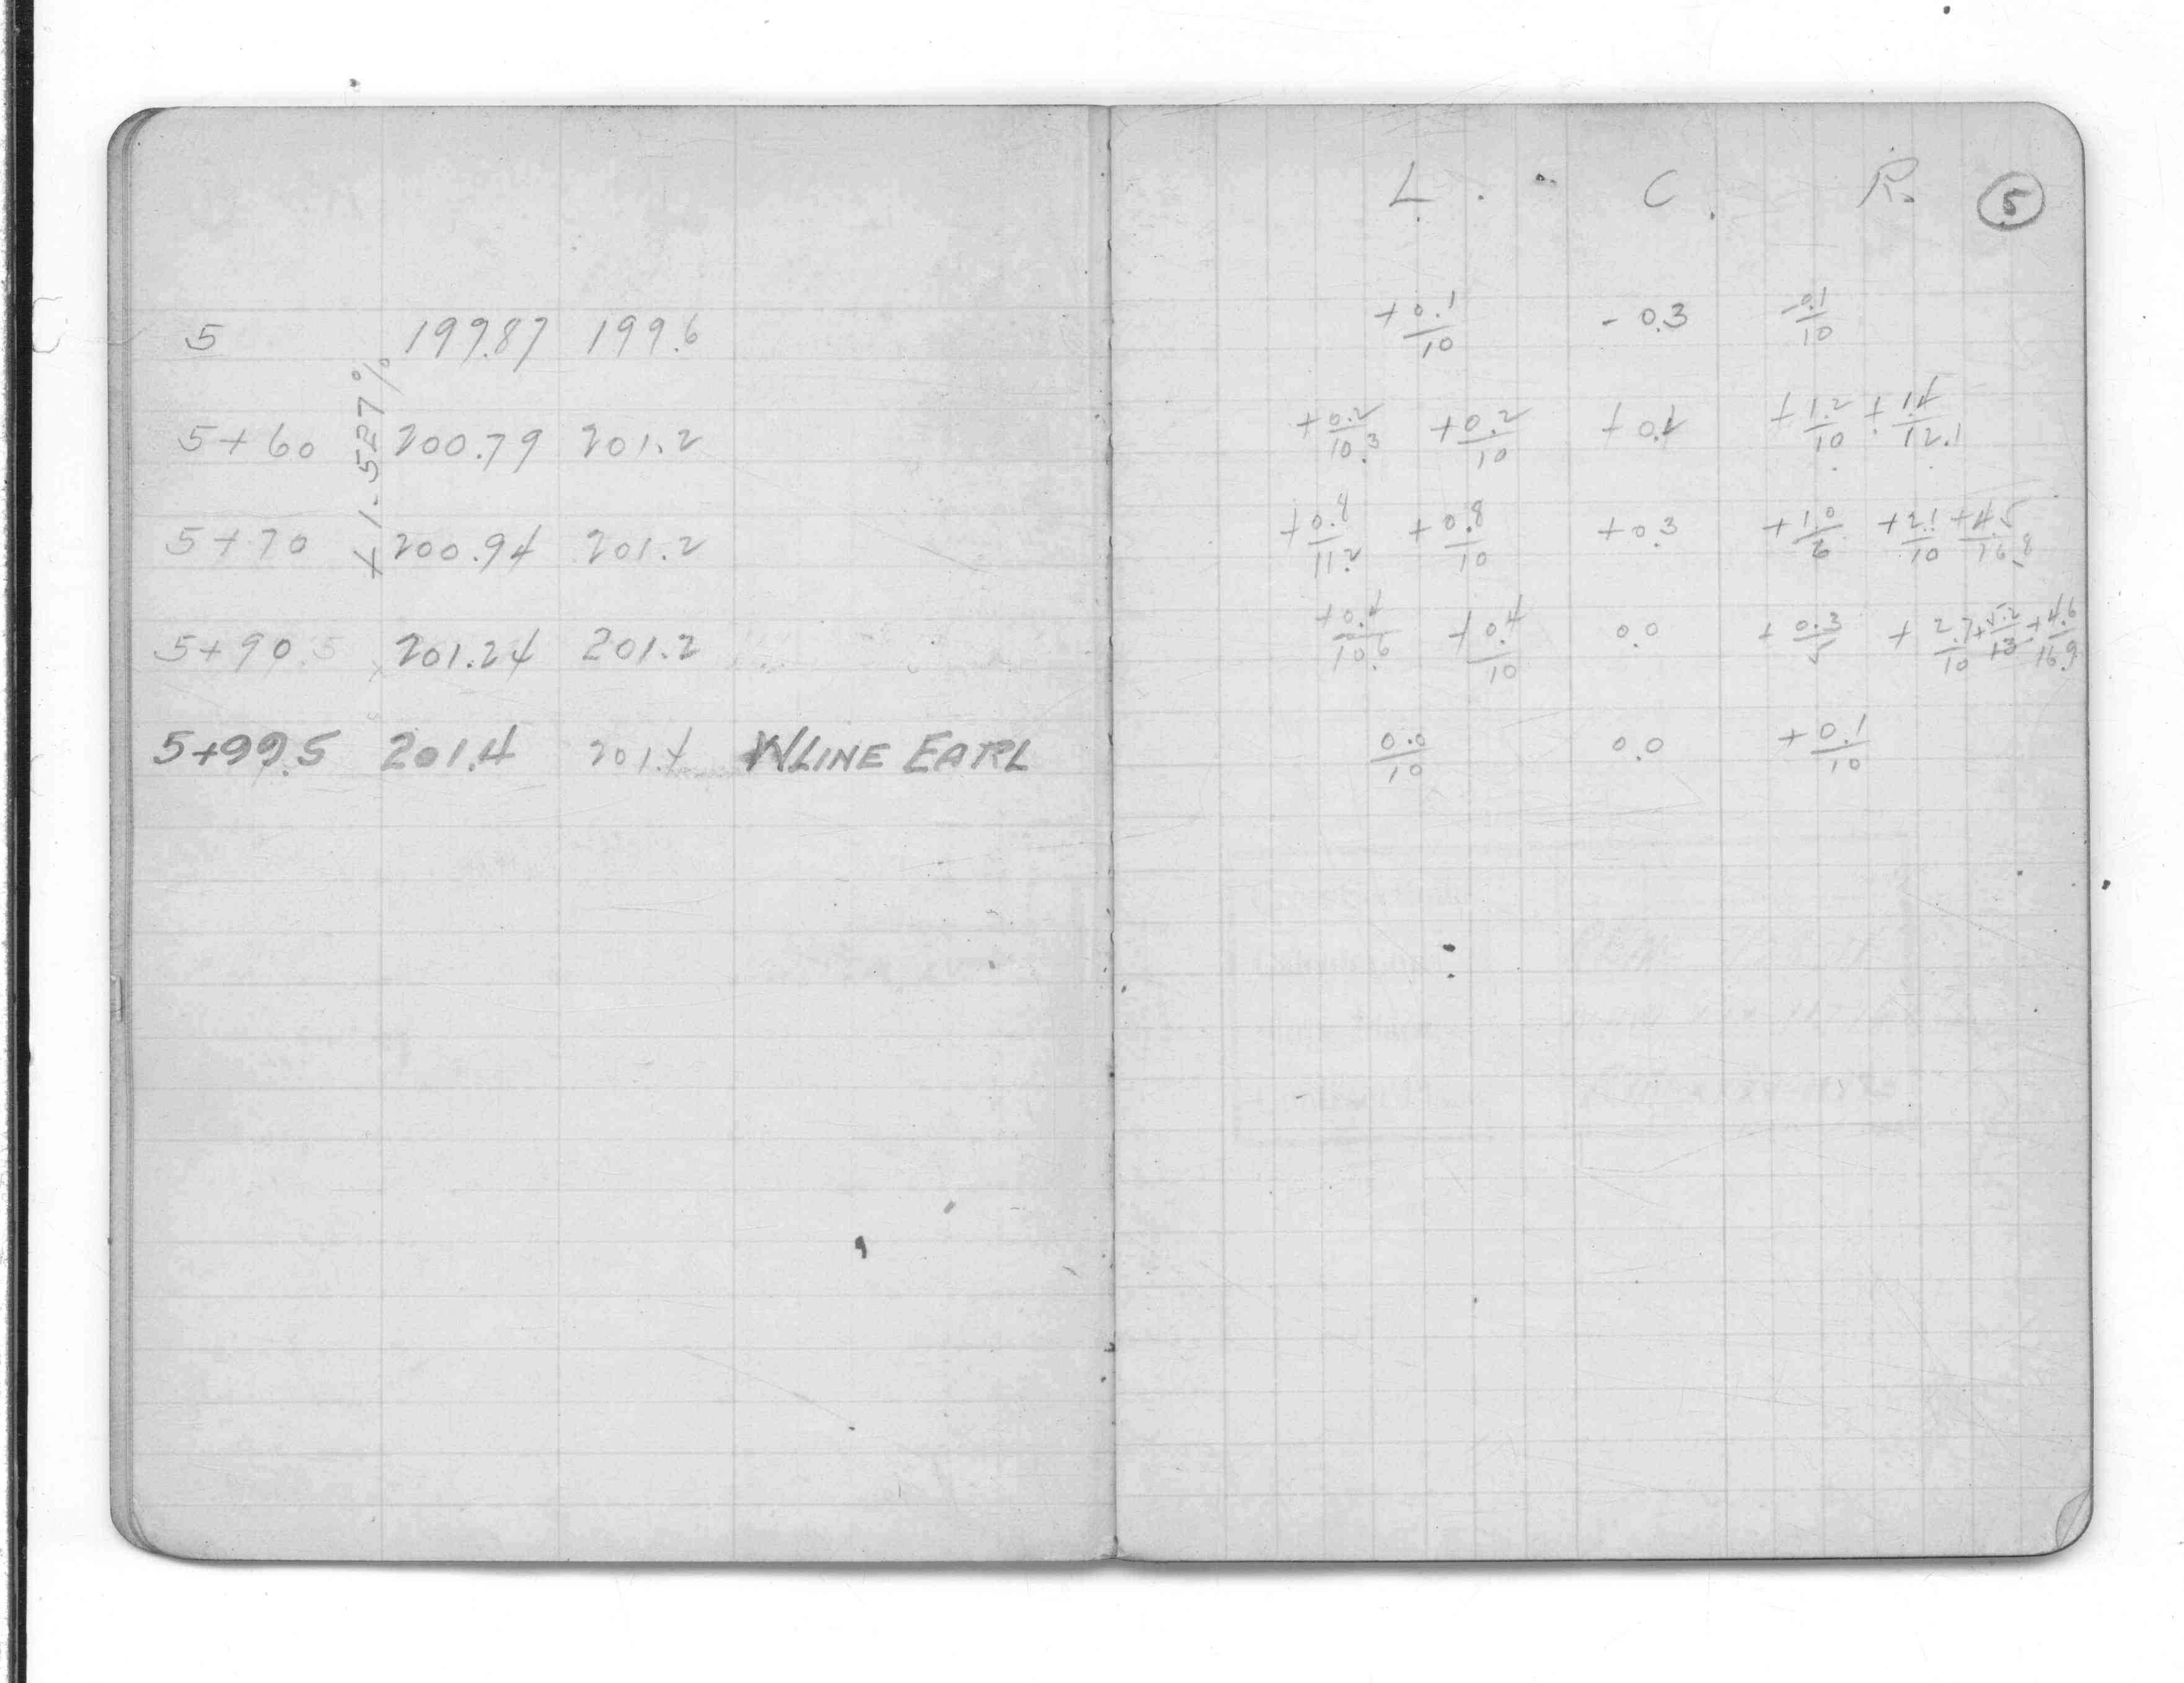 L. C. R. 5
5 199.87 199.6 +0.1/10 -0.3 -0.1/10
+1.527%
5+60 200.79 201.2 +0.2/10.3 +0.2/10 +1.2/10 +1.4/12.1
5+70 200.94 201.2 +0.8/11.2 +0.8/10 +0.3 +1.0/6 +2.1/10 +4.5/16.8
5+90.5 201.24 201.2 +0.4/10.6 +0.4/10 0.0 +0.3/5 +2.7/10 +5.2/13 +4.6/16.9
5+99.5 201.4 201.4 WLINE EARL 0.0/10 0.0 +0.1/10